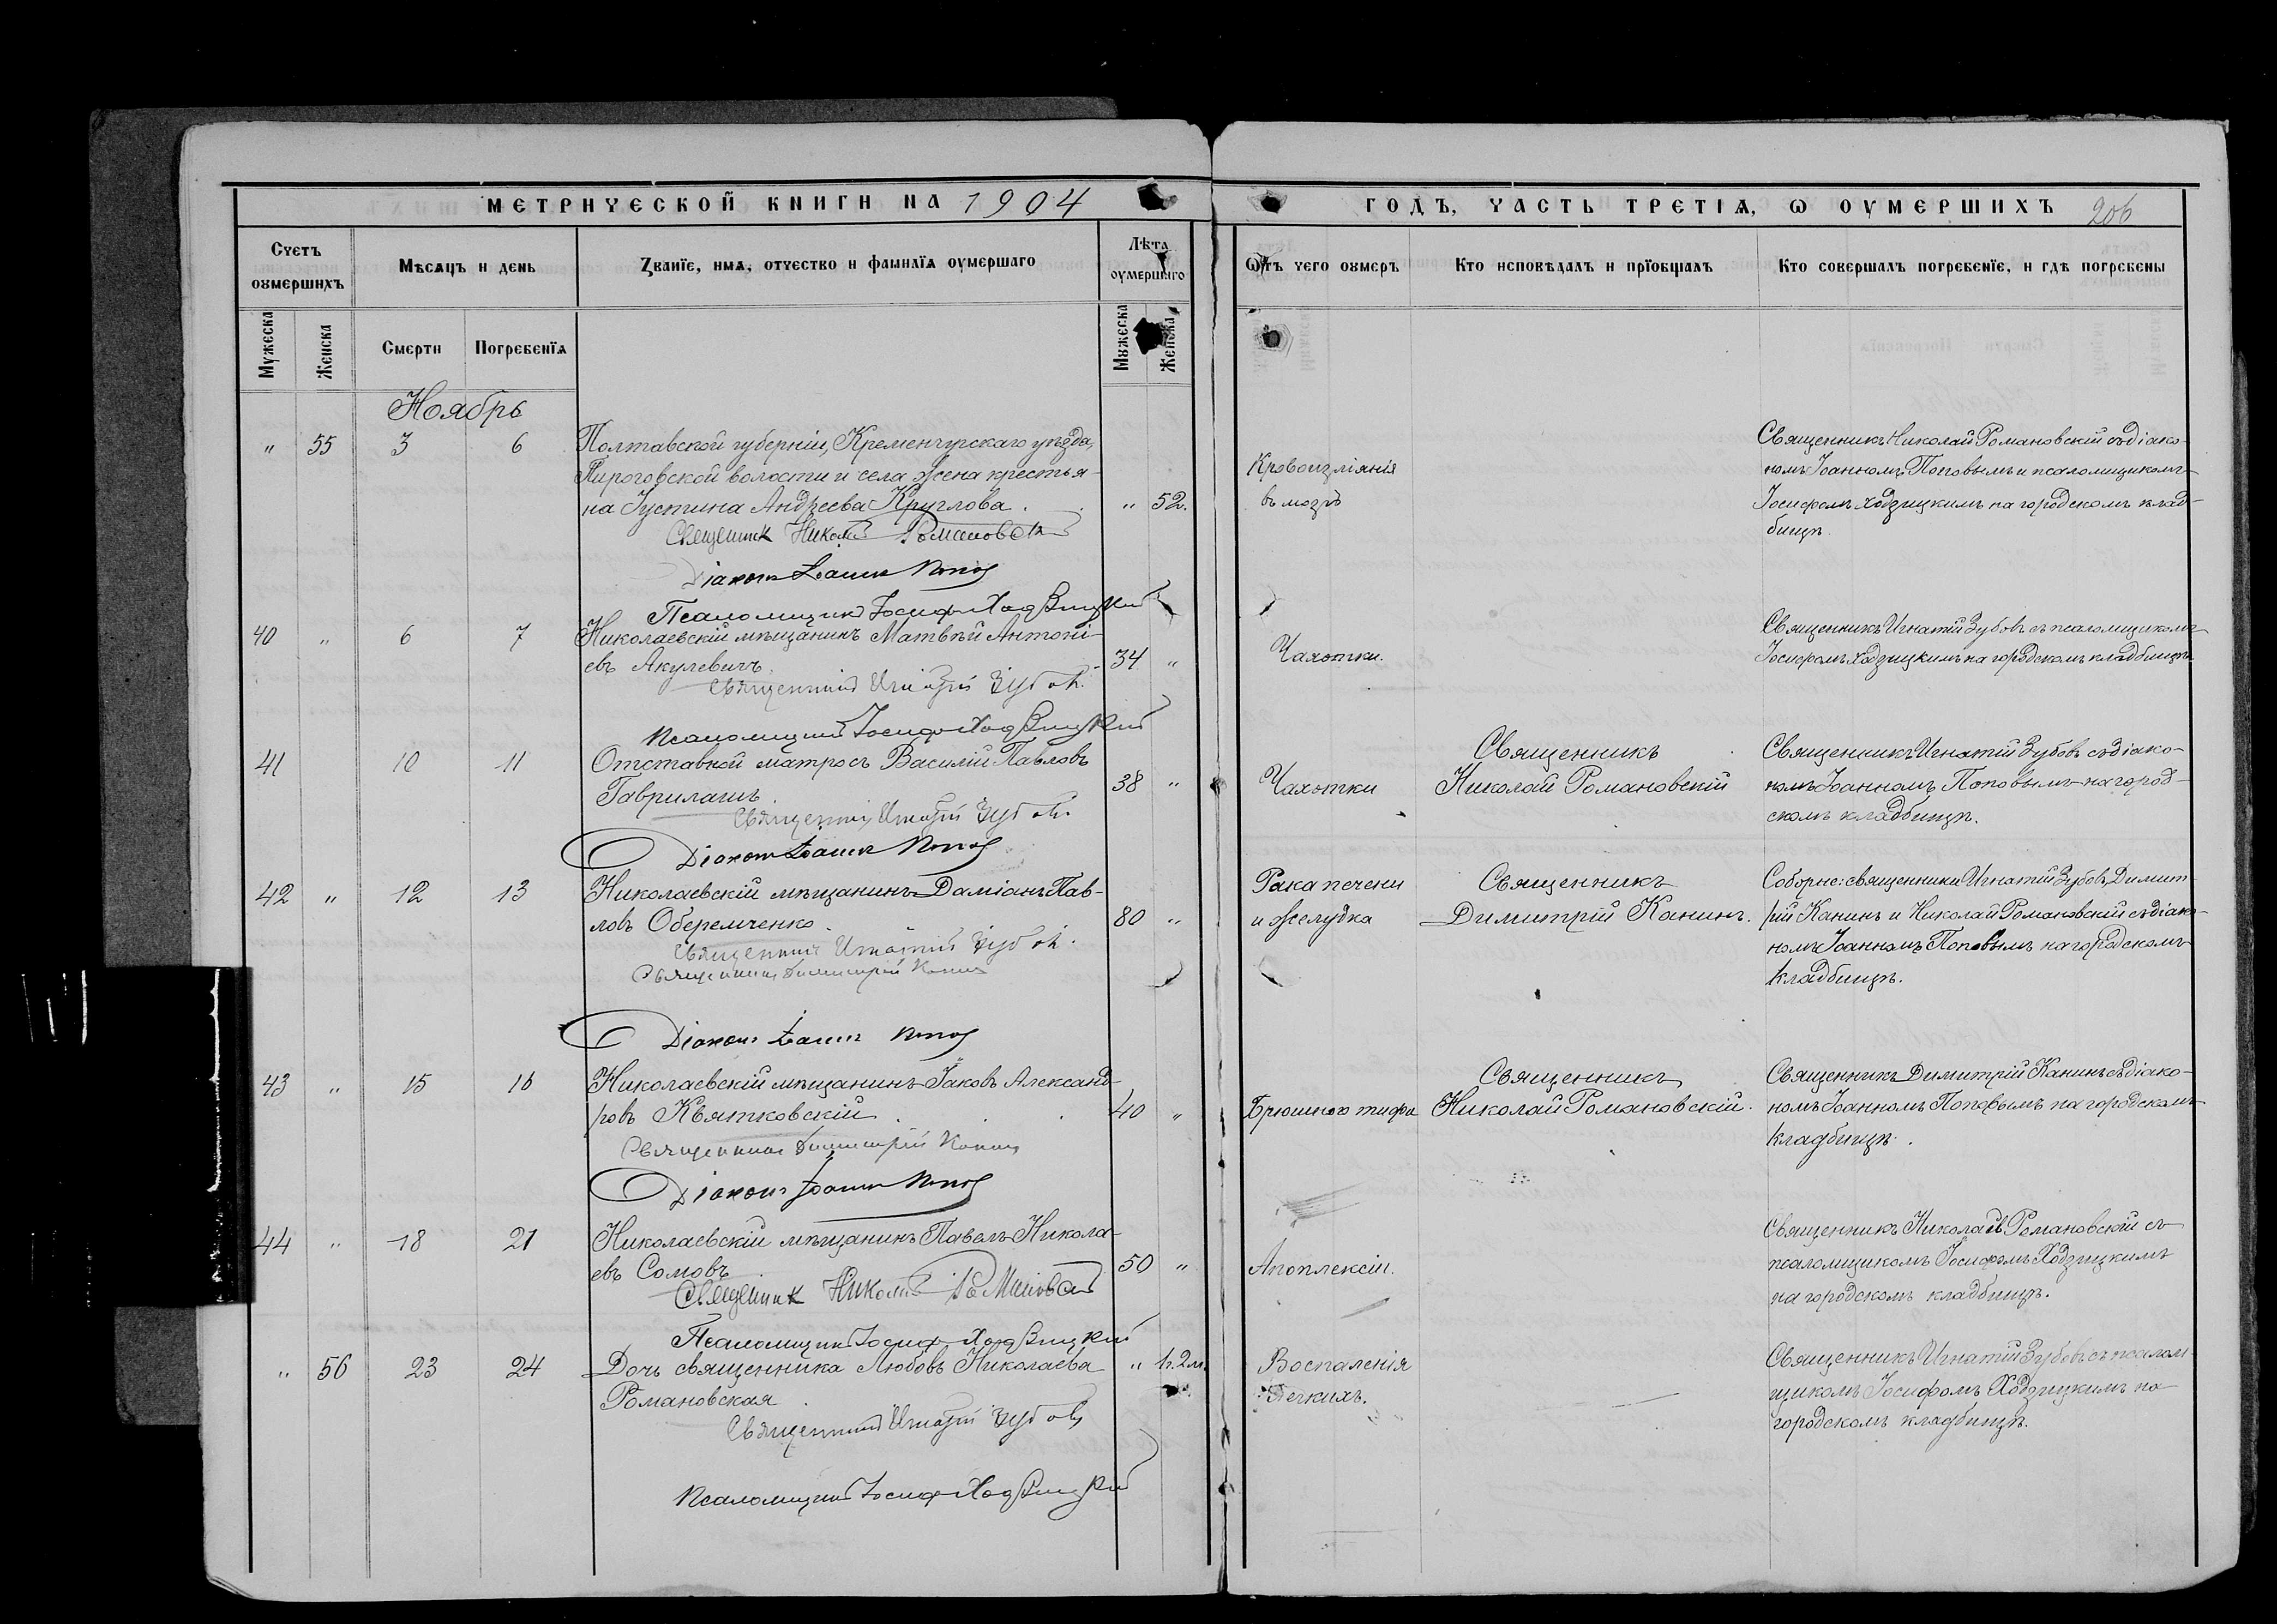 МЕТРИЧЕСКОЙ КНИГИ НА 1904 ГОДЪ, ЧАСТЬ ТРЕТІѦ, Ѡ ОУМЕРШИХЪ 206
Счетъ оумершихъ
Мѣсѧцъ и день
Званїе, имѧ, отчество и фамилїѧ оумершаго
Лѣта оумершаго
Ѿ чего оумеръ
Кто исповѣдалъ и прїобщалъ
Кто совершалъ погребенїе, и гдѣ погребены
Мужеска
Женска
Смерти
Погребенїѧ
Мужеска
Женска
Ноябрь
" 55 3 6 Полтавской губерніи, Кременчугскаго уѣзда,
Пироговской волости и села жена крестья-
на Іустина Андреева Круглова. " 52.
Кровоизліянія
въ мозгъ
Священникъ Николай Романовскій съ діако-
номъ Іоанномъ Поповымъ и псаломщикомъ
Іосифомъ Ходзицкимъ на городскомъ клад-
бищѣ.
Священник Николай Романовскій
Діаконъ Іоаннъ Попов
Псаломщик Іосифъ Ходзицкий
40 " 6 7 Николаевскій мѣщанинъ Матвѣй Антоні-
евъ Акулевичъ. 34 "
Чахотки.
Священникъ Игнатій Зубовъ съ псаломщикомъ
Іосифомъ Ходзицкимъ на городскомъ кладбищѣ.
Священникъ Игнатій Зубовъ.
Псаломщикъ Іосифъ Ходзицкий
41 10 11 Отставной матросъ Василій Павловъ
Гаврилашъ. 38 "
Чахотки
Священникъ
Николай Романовскій
Священникъ Игнатій Зубовъ съ діако-
номъ Іоанномъ Поповымъ на город-
скомъ кладбищѣ.
Священникъ Игнатій Зубовъ.
Діаконъ Іоаннъ Попов
42 " 12 13 Николаевскій мѣщанинъ Даміанъ Пав-
ловъ Оберемченко. 80 "
Рака печени
и желудка
Священникъ
Димитрій Канинъ.
Соборне: священники Игнатій Зубовъ, Димит-
рій Канинъ и Николай Романовскій съ діако-
номъ Іоанномъ Поповымъ на городскомъ
кладбищѣ.
Священникъ Игнатій Зубовъ.
Священникъ Димитрій Канинъ
Діаконъ Іоаннъ Попов
43 " 15 16 Николаевскій мѣщанинъ Іаковъ Александ-
ровъ Квятковскій. 40 "
Брюшного тифа
Священникъ
Николай Романовскій.
Священникъ Димитрій Канинъ съ діако-
номъ Іоанномъ Поповымъ на городскомъ
кладбищѣ.
Священникъ Димитрій Канинъ
Діаконъ Іоаннъ Попов
44 " 18 21 Николаевскій мѣщанинъ Павелъ Никола-
евъ Сомовъ 50 "
Апоплексіи.
Священникъ Николай Романовскій съ
псаломщикомъ Іосифомъ Ходзицкимъ
на городскомъ кладбищѣ.
Священник Николай Романовскій
Псаломщикъ Іосифъ Ходзицкий
" 56 23 24 Дочь священника Любовь Николаева " 1г. 2м.
Романовская.
Воспаленія
легкихъ.
Священникъ Игнатій Зубовъ съ псалом-
щикомъ Іосифомъ Ходзицкимъ на
городскомъ кладбищѣ.
Священникъ Игнатій Зубовъ
Псаломщикъ Іосифъ Ходзицкий